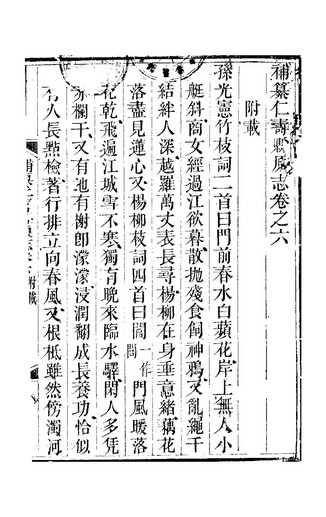 補纂仁壽縣原志卷之六
附載
孫光憲竹枝詞二首曰門前春水白蘋花岸上無人小
艇斜商女經過江欲暮散拋殘食飼神鴉又亂繩千
結絆人深越羅萬丈表長尋楊柳在身垂意緒藕花
落盡見蓮心又楊柳枝詞四首曰一作門風暖落
花乾飛過江城雪不寒獨有晚來臨水驛閑人多凭
赤欄干又有池有榭即濛濛浸潤翻成長養功恰似
有人長點檢著行排立向春風又根柢雖然傍濁河
附載